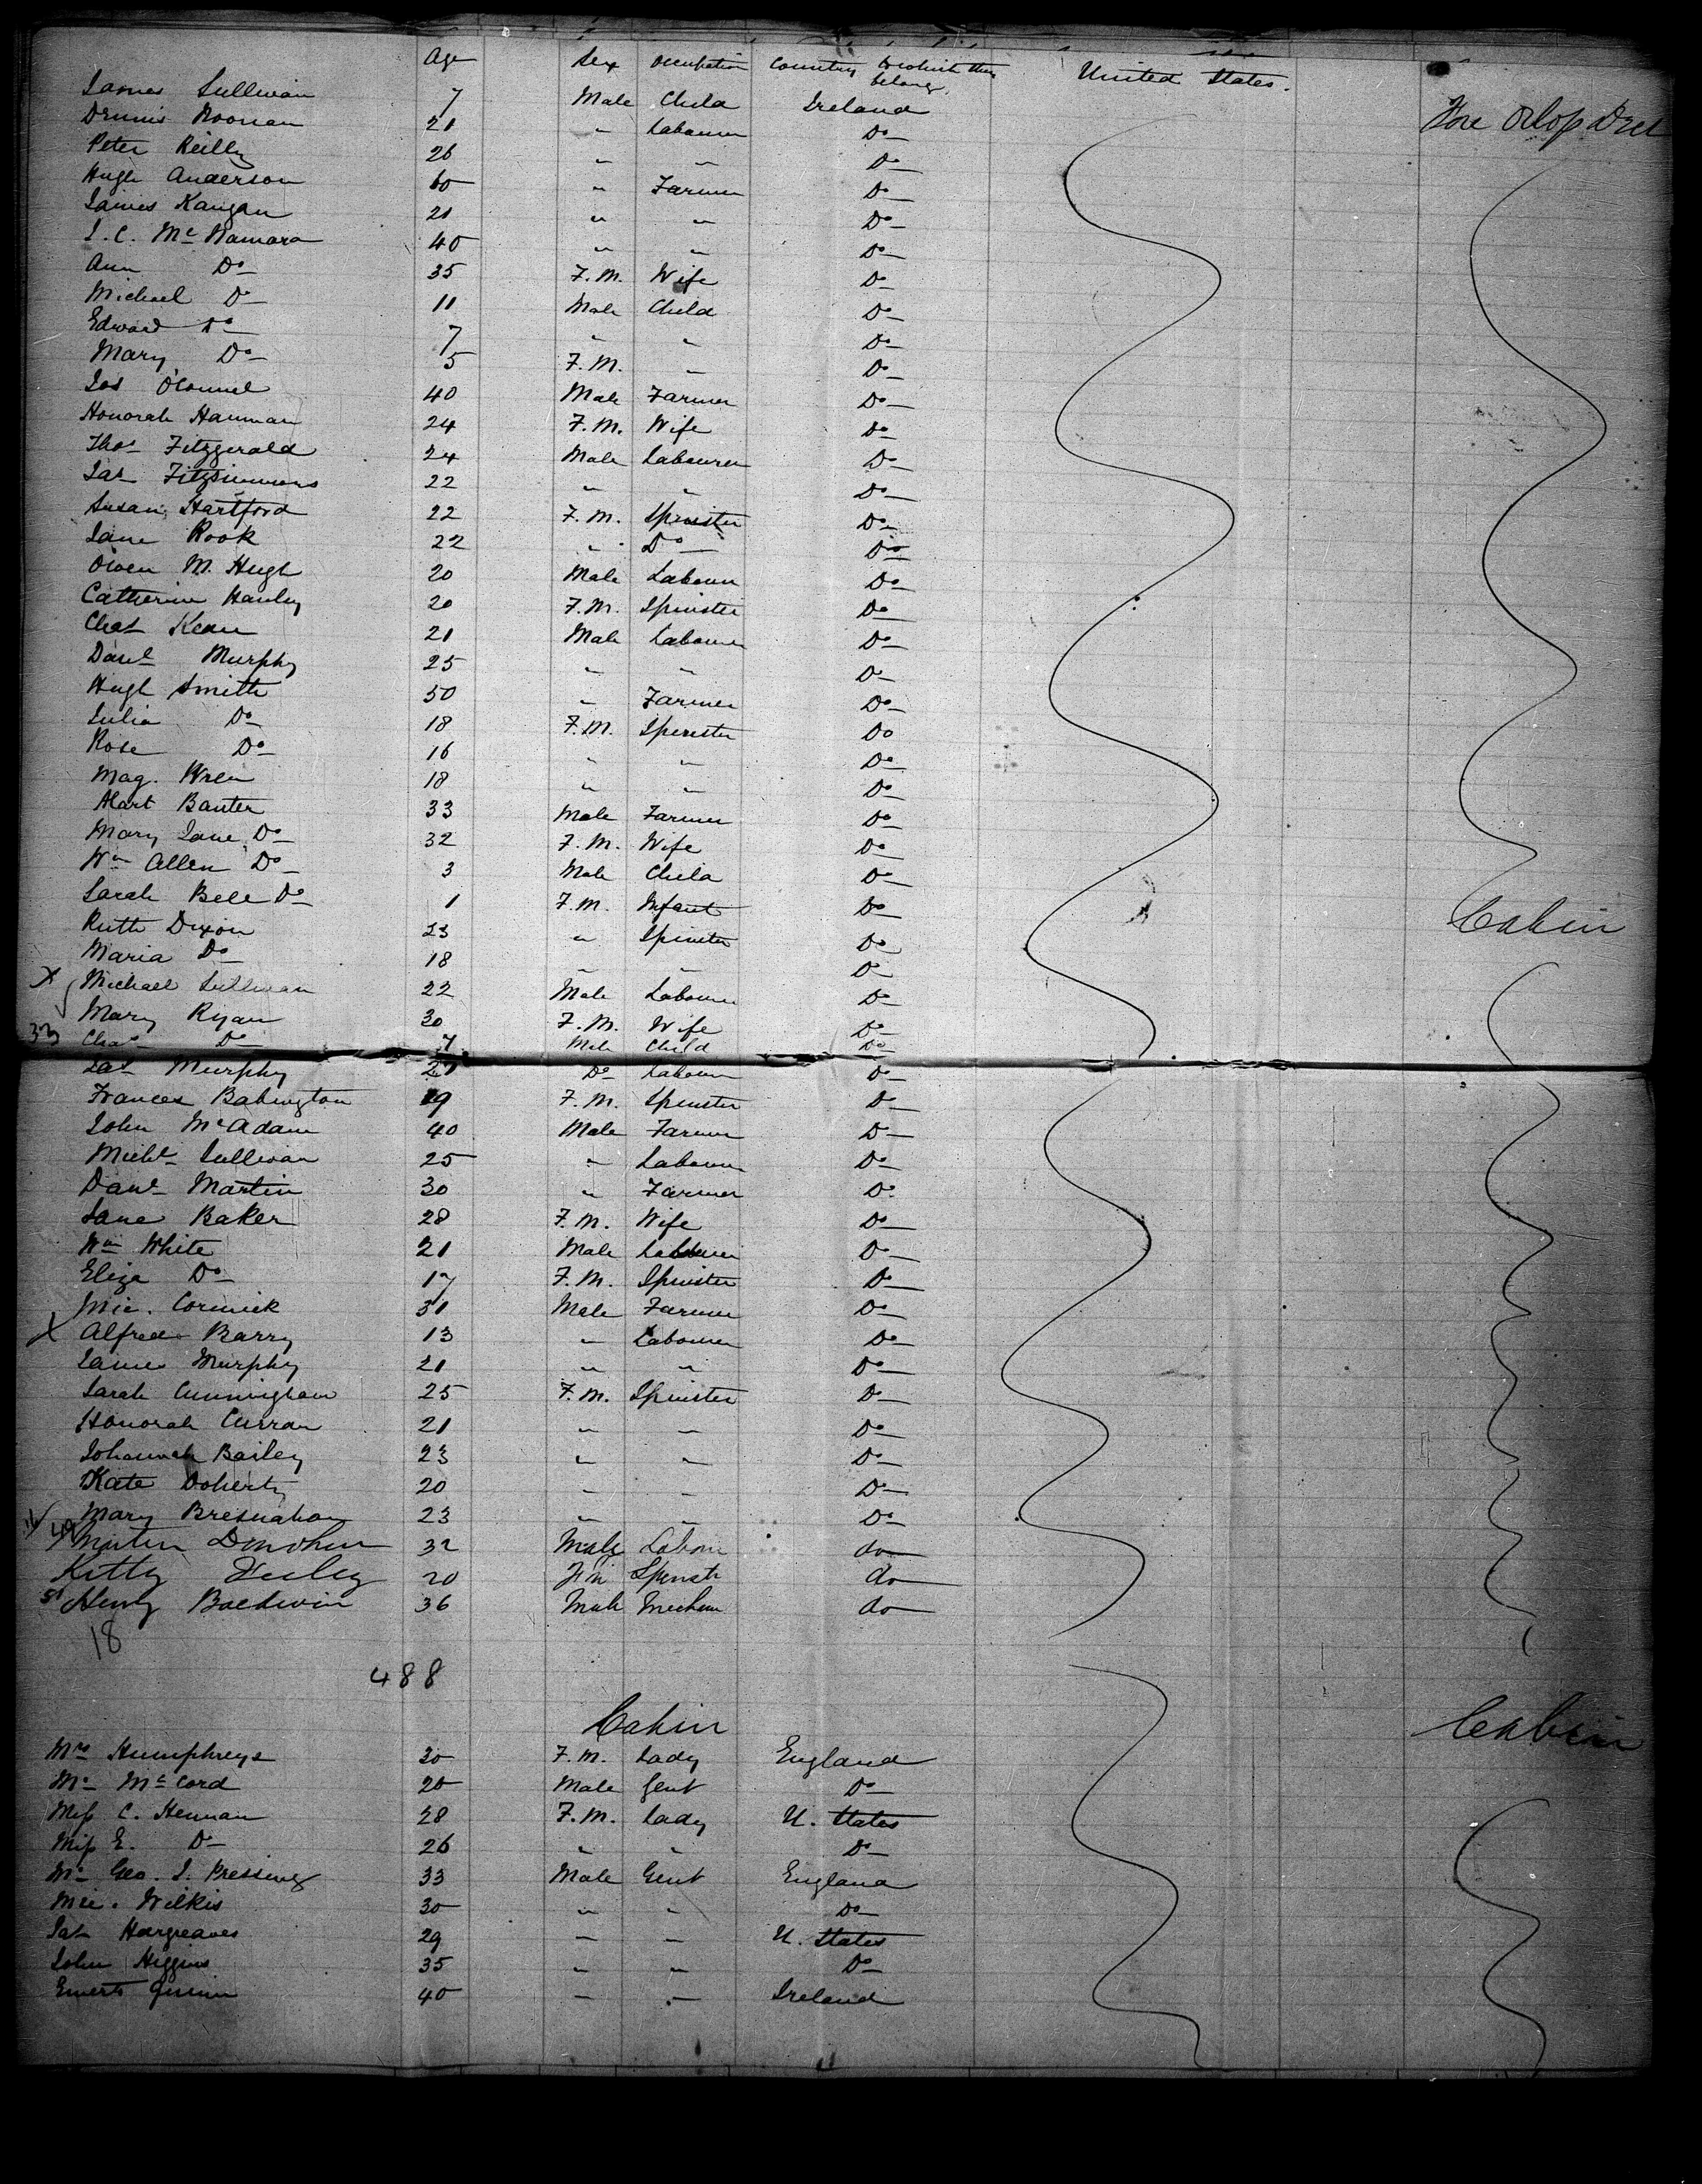 Age Sex Occupation Country to which they belong United States.
James Sullivan 7 Male Child Ireland Fore Orlop Deck
Dennis Noonan 21 " Labourer Do
Peter Reilly 26 " " Do
Hugh Anderson 60 " Farmer Do
James Kangan 21 " " Do
J. C. McNamara 40 " " Do
Ann Do 35 F.M. Wife Do
Michael Do 11 Male Child Do
Edward Do 7 " " Do
Mary Do 5 F.M. " Do
Jas O'Connel 40 Male Farmer Do
Honorah Hannan 24 F.M. Wife Do
Thos Fitzgerald 24 Male Labourer Do
Jas Fitzsimmons 22 " " Do
Susan Hartford 22 F.M. Spinster Do
Jane Rook 22 " Do Do
Owen M. Hugh 20 Male Labourer Do
Catherine Hanley 20 F.M. Spinster Do
Chas Kean 21 Male Labourer Do
Danl Murphy 25 " " Do
Hugh Smith 50 " Farmer Do
Julia Do 18 F.M. Spinster Do
Rose Do 16 " " Do
Mag. Wren 18 " " Do
Mart Banter 33 Male Farmer Do
Mary Jane Do 32 F.M. Wife Do
Wm Allen Do 3 Male Child Do
Sarah Bell Do 1 F.M. Infant Do Cabin
Ruth Dixon 23 " Spinster Do
Maria Do 18 " " Do
X Michael Sullivan 22 Male Labourer Do
Mary Ryan 30 F.M. Wife Do
33 Chas Do 7 Male Child Do
Jas Murphy Do Labourer Do
Frances Babington 19 F.M. Spinster Do
John McAdam 40 Male Farmer Do
Michl Sullivan 25 " Labourer Do
Danl Martin 30 " Farmer Do
Jane Baker 28 F.M. Wife Do
Wm White 21 Male Labourer Do
Eliza Do 17 F.M. Spinster Do
Mic. Cormick 31 Male Farmer Do
X Alfred Barry 13 " Labourer Do
James Murphy 21 " " Do
Sarah Cunningham 25 F.M. Spinster Do
Honorah Curran 21 " " Do
Johannah Bailey 23 " " Do
Kate Doherty 20 " " Do
Mary Bresnahan 23 " " Do
49 Martin Donohue 32 Male Labour do
Kitty 20 Fm Spinstr do
51 Henry Baldwin 36 Male Mechan do
18
488
Cabin Cabin
Mrs Humphreys 30 F.M. Lady England
Mr McCord 20 Male Gent Do
Miss C. Henman 28 F.M. Lady U. States
Miss E. Do 26 " " Do
Mr Geo. J. Pressing 33 Male Gent England
Mic. Wilkis 30 " " Do
Jas Hargreaves 29 " " U. States
John Higgins 35 " " Do
40 " " Ireland